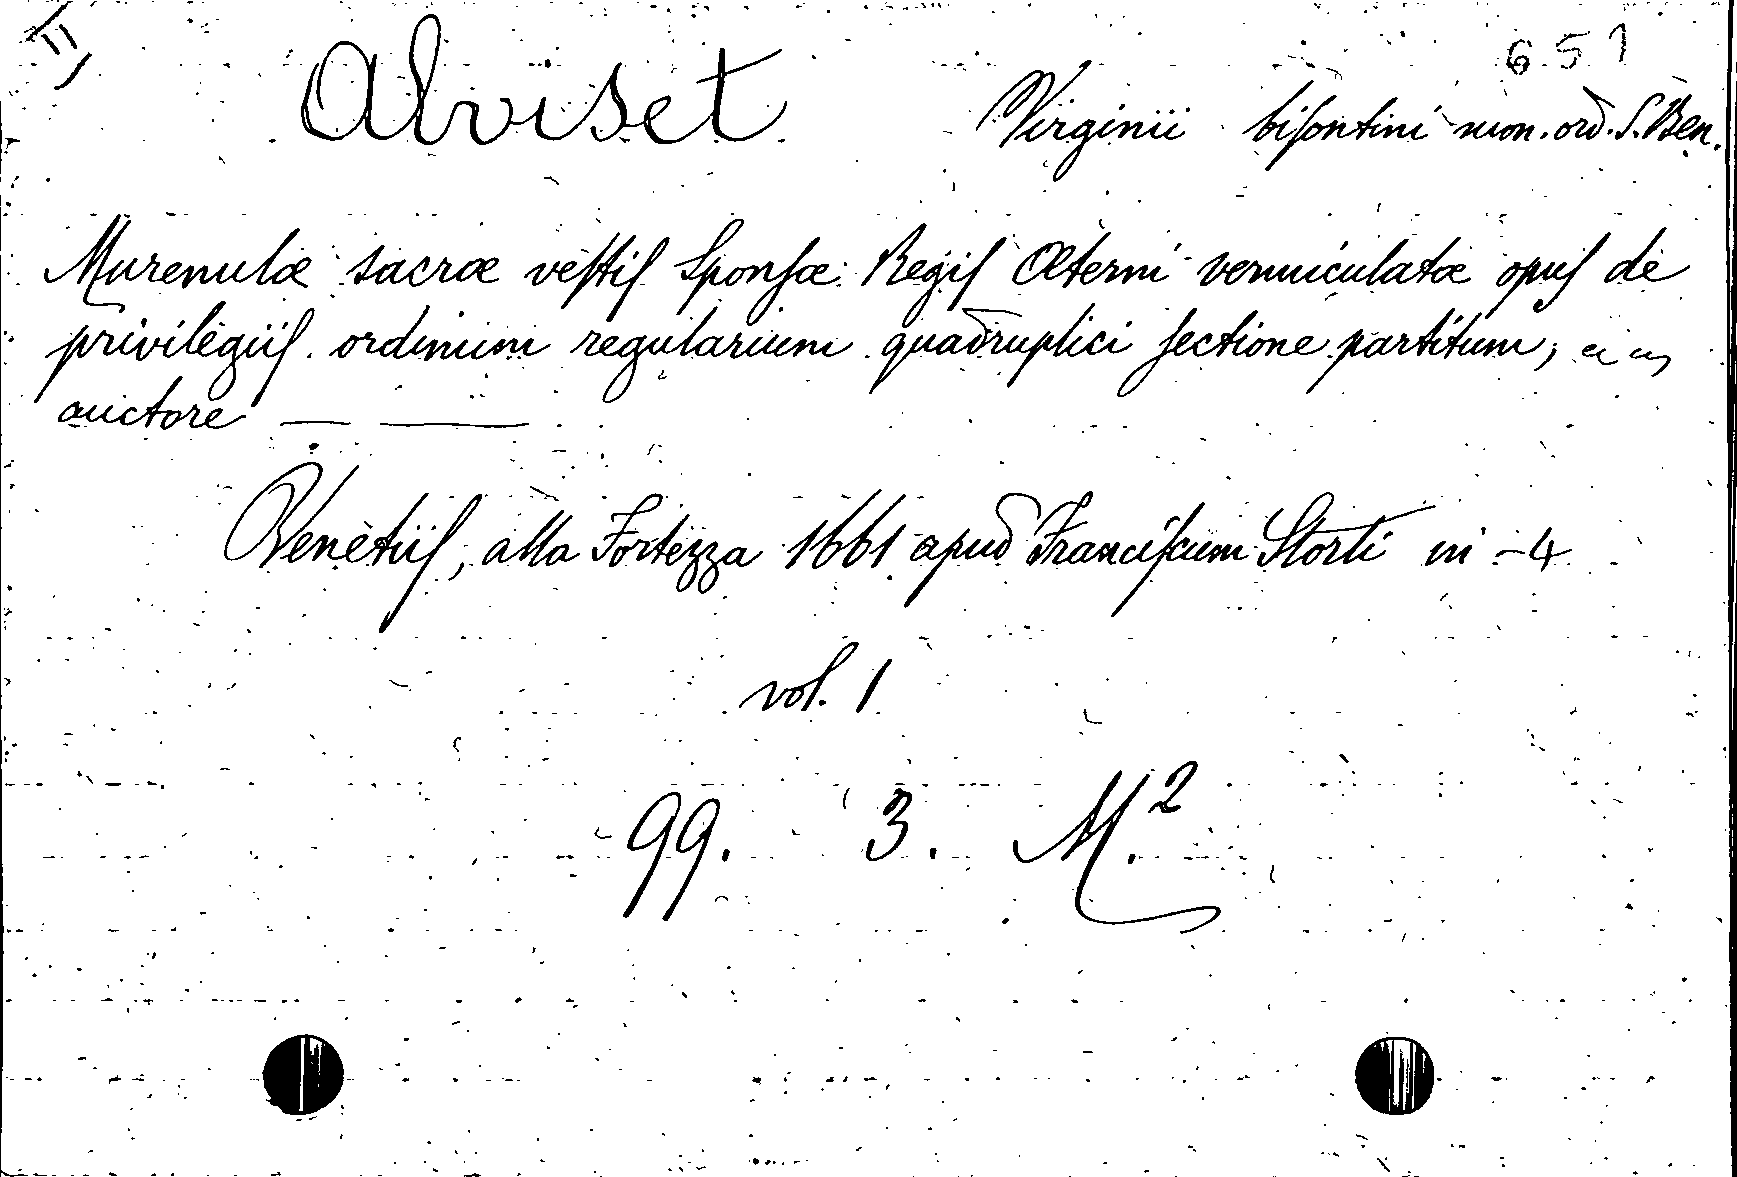 651
Alviset Virginii bisontini mon. ord. S. Ben.
Murenulæ sacræ vestis Sponsæ Regis Æterni vermiculatæ opus de
privilegiis ordinum regularium quadruplici sectione partitum;
auctore — —
Venetiis, alla Fortezza 1661 apud Franciscum Storti in-4
vol. 1
99. 3. M.2